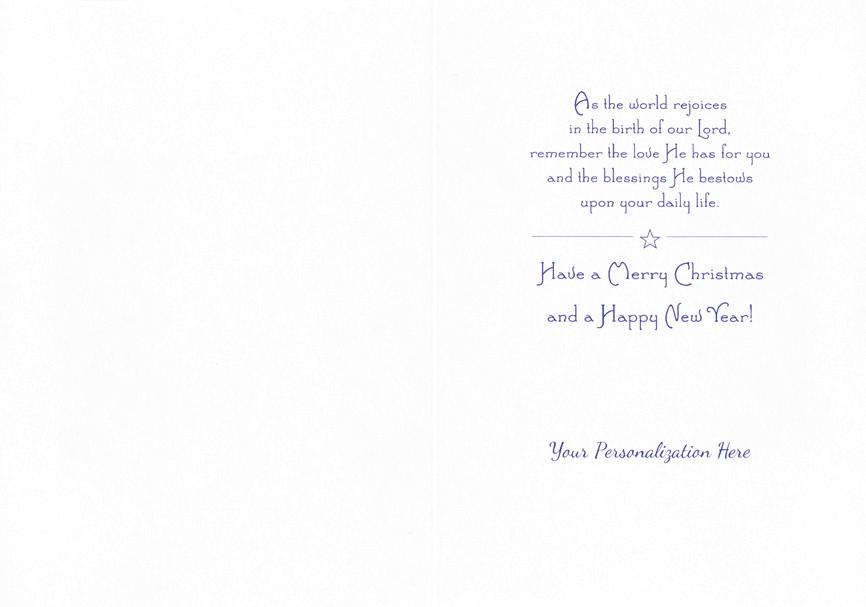 As the world rejoices
in the birth of our Lord,
remember the love He has for you
and the blessings He bestows
upon your daily life.
Have a Merry Christmas
and a Happy New Year!
Your Personalization Here